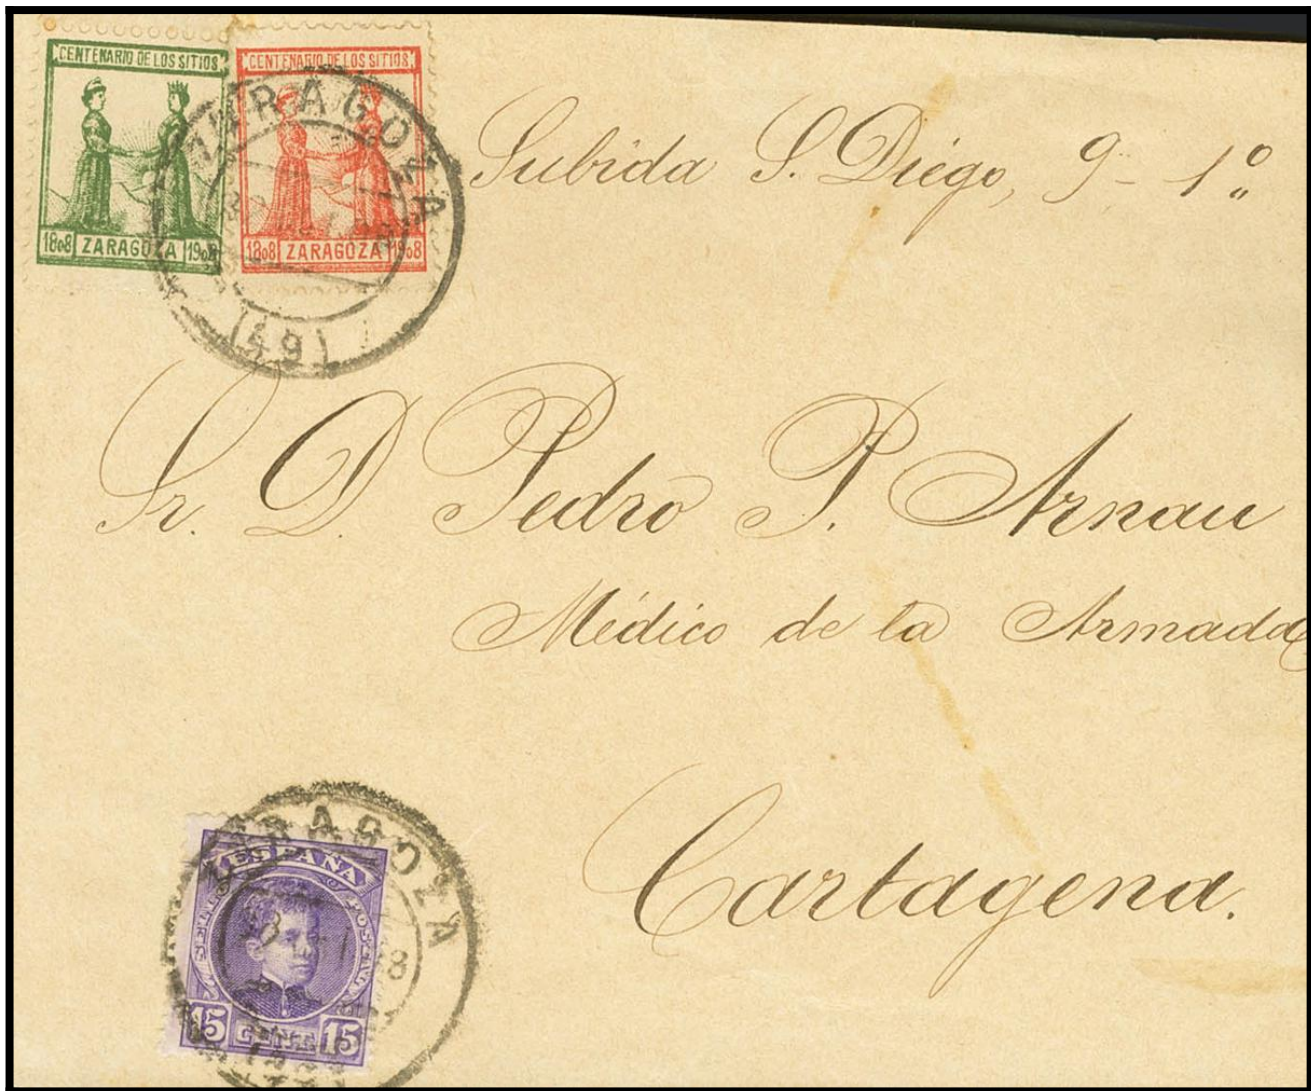 CENTENARIO DE LOS SITIOS
1808 ZARAGOZA 1908
CENTENARIO DE LOS SITIOS
1808 ZARAGOZA 1908
ZARAGOZA
(49)
Subida S. Diego, 9 - 1º
Sr. D. Pedro P. Arnau
Médico de la Armada
Cartagena.
ZARAGOZA
ESPAÑA
15 CENT. 15